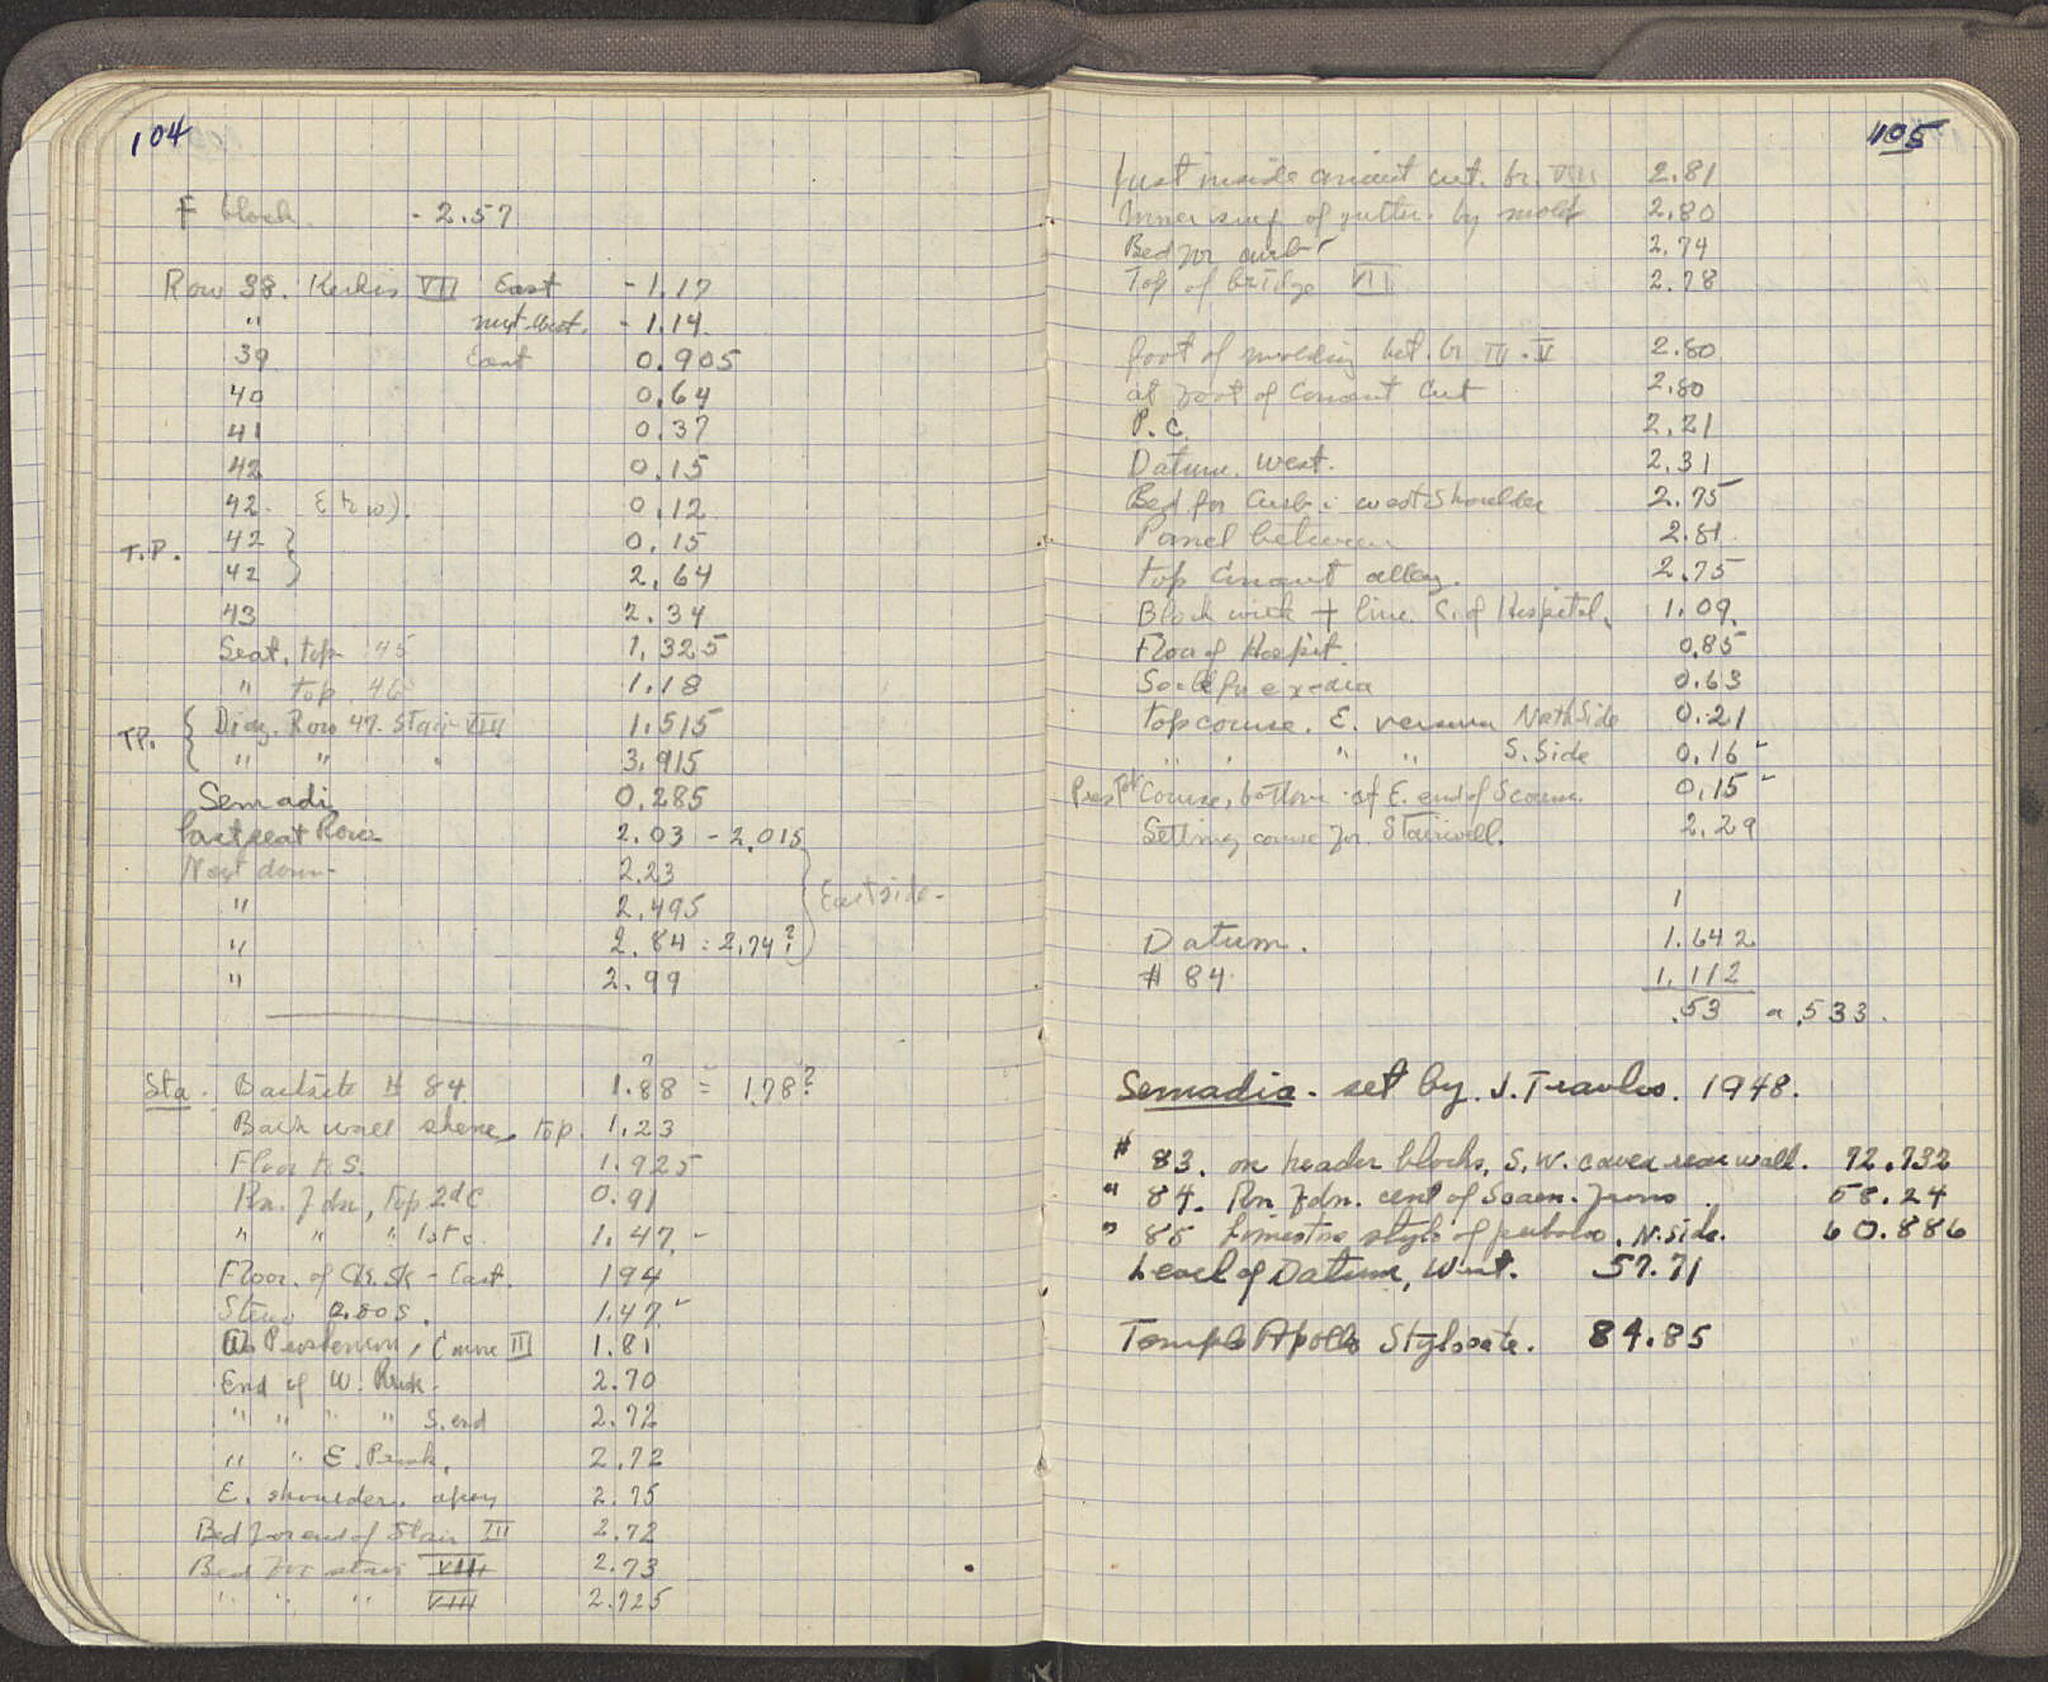 104
F block. - 2.57
Row 38. Kerkis VII East - 1.17
" next West. - 1.14.
39 East 0.905
40 0.64
41 0.37
42 0.15
42. 0.12
T.P. 42 0.15
42 2.64
43 2.34
Seat, top 45 1.325
" top 46 1.18
TP. Diaz. Row 47. Stair VIII 1.515
" " " 3.915
Semadi 0.285
Last seat Row 2.03 - 2.015
Next down- 2.23
" 2.495 East side-
" 2.84 : 2.74?
" 2.99
Sta. Backsite # 84 1.88 = 1.78?
Back wall skene, top. 1.23
Floor to S. 1.925
Rn. Fdn, top 2d C 0.91
" " " 1st c. 1.47.-
Floor. of Gr. Sk - East. 194
2.80 S. 1.47
Proskenion, Course III 1.81
End of W. 2.70
" " " " S. end 2.72
" " E. 2.72
E. shoulder. 2.75
Bed for end of Stair III 2.72
Bed for stair VIII 2.73
" " " VIII 2.725
105
Just inside ancient cut. br. VIII 2.81
Inner surf of gutter. by mold 2.80
Bed for curb 2.74
Top of bridge VII 2.78
foot of molding bet. br IV - V 2.80
at foot of ancient cut 2.80
P.C. 2.21
Datum. West. 2.31
Bed for Curb: west shoulder 2.75
Panel between 2.81.
top ancient alley. 2.75
Block with + line. S. of Hospital. 1.09.
Floor of Hospit. 0.85
Socle for exedra 0.63
top course. E. versura North Side 0.21
" " " " S. Side 0.16
Course, bottom of E. end of S course. 0.15
Setting course for Stairwell. 2.29
1
Datum. 1.642
# 84. 1.112
.53 or .533.
Semadia. set by J. Travlos. 1948.
# 83. on header blocks, S.W. corner rear wall. 72.732
" 84. Rn Fdn. cent of Scaen. Frons. 58.24
" 85 Limestone stylo of peribolos. N. side. 60.886
Level of Datum, West. 57.71
Temple Apollo Stylobate. 84.85